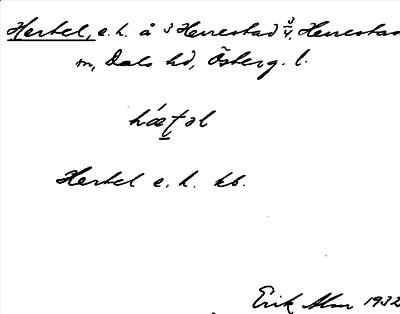 Hertel, e. h. å 3 Herrestad 3/4, Herrestad
m, Dals hd, Österg. l.
hǽt̠əl
Hertel e. h. kb.
Erik Abm 1932